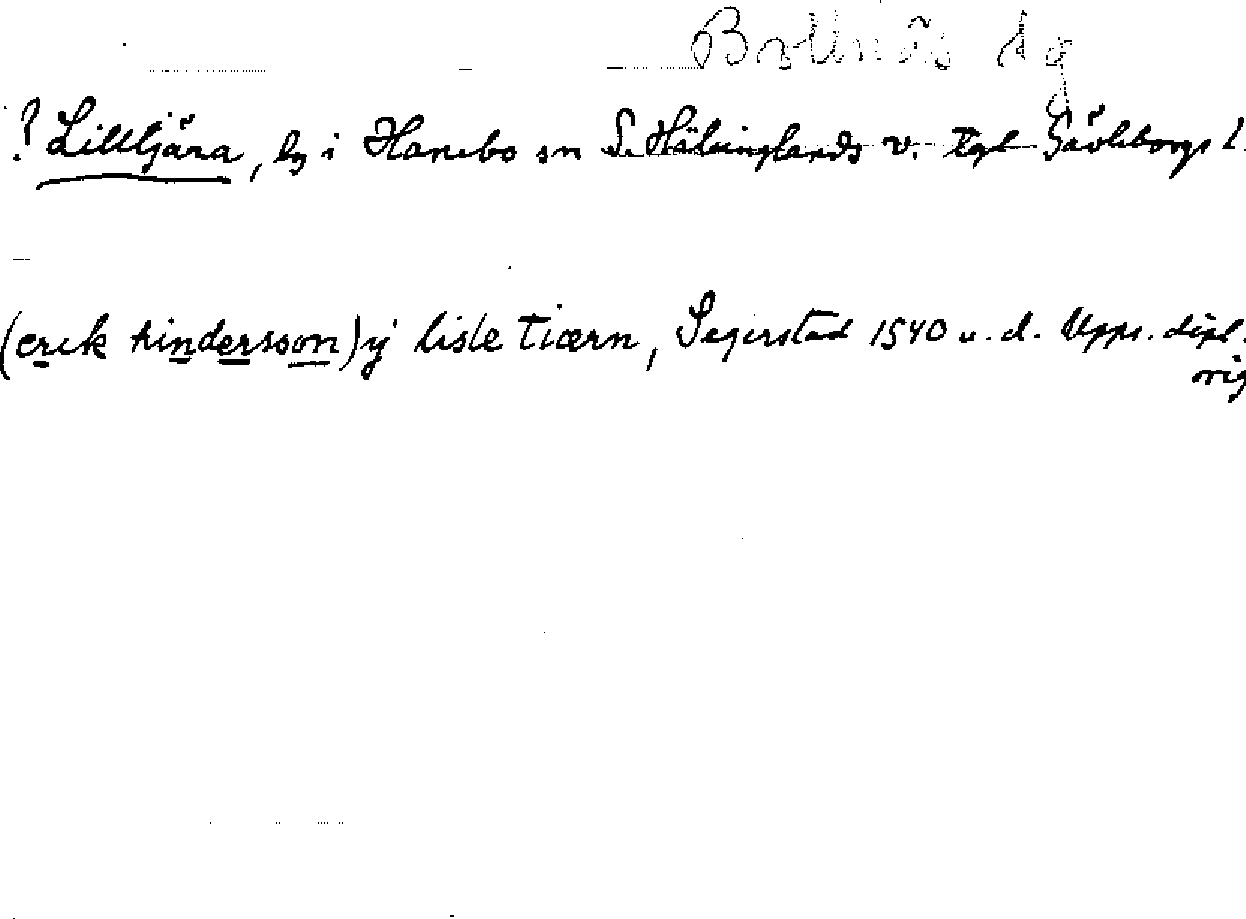 Bollnäs dg
? Lilltjära, by i Hanebo sn S. Hälsinglands v. tgl Gävleborgs l.
(erik hindersson) ÿ lisle Tiærn, Segerstad 1540 u. d. Upps. dipl.
orig